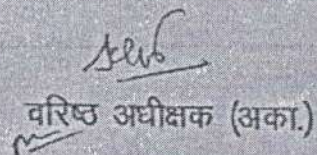 वरिष्ठ अधीक्षक (अका.)